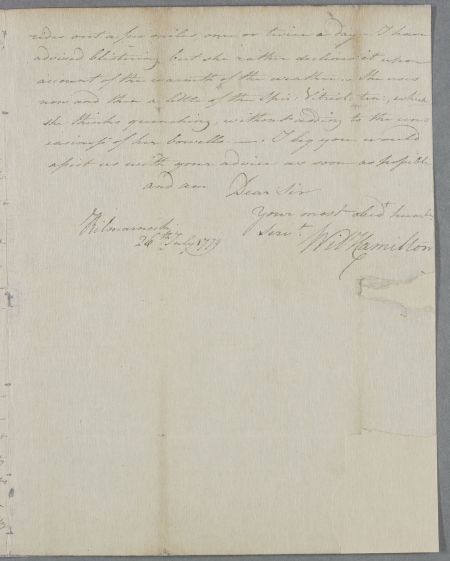 rides out a few miles once or twice a day. I have
advised blistering but she rather declines it upon
account of the warmth of the weather. She uses
now and then a little of the Spir: Vitriol. ten:, which
she thinks quenching, without adding to the un
easiness of her bowells —. I beg you would
assist us with your advice as soon as possible
and am Dear Sir
Your most obed.t humble
Serv.t
Kilmarnock
26th July 1779
Wil Hamilton